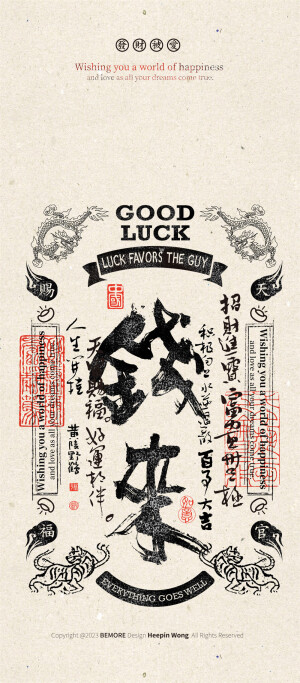 發財被愛
Wishing you a world of happiness
and love as all your dreams come true.
GOOD
LUCK
LUCK FAVORS THE GUY
賜
天
中國
招財進寶
積極向上
百事大吉
錢來
好運相伴
黃陵野鶴
Wishing you a world of happiness
and love as all your dreams come true.
Wishing you a world of happiness
and love as all your dreams come true.
福
官
EVERYTHING GOES WELL
Copyright @2023 BEMORE Design Heepin Wong. All Rights Reserved